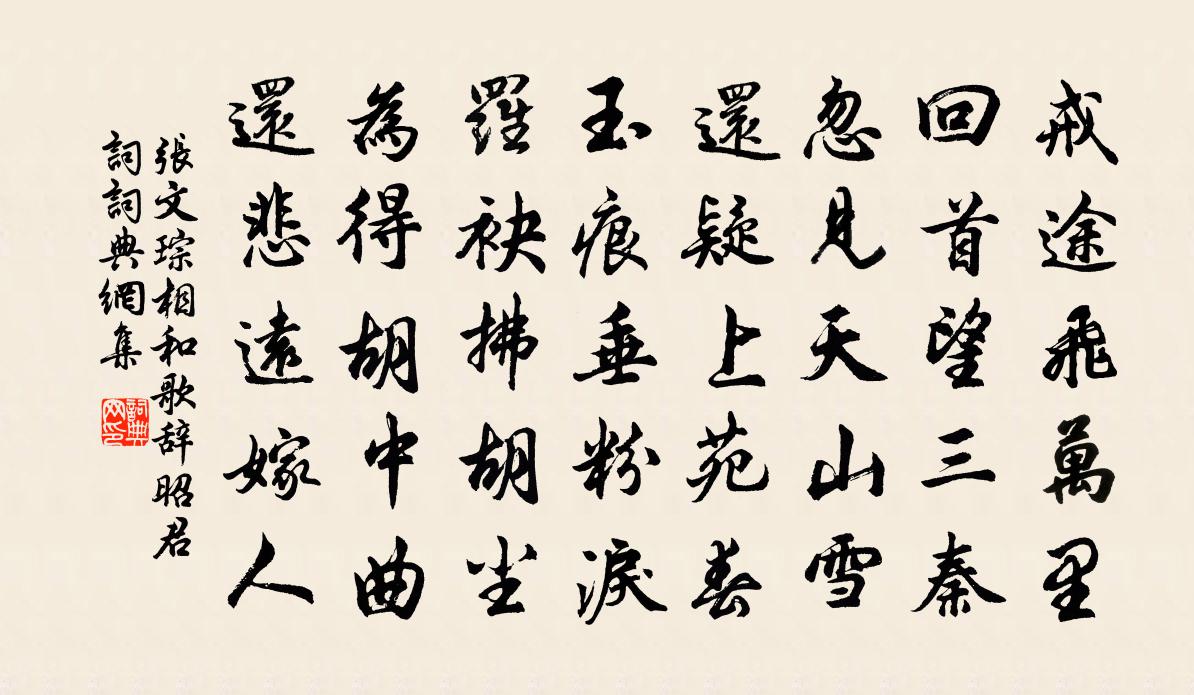 戒途飛萬里
回首望三秦
忽見天山雪
還疑上苑春
玉痕垂粉淚
羅袂拂胡塵
為得胡中曲
還悲遠嫁人
張文琮相和歌辞昭君
詞詞典網集
詞典
网印